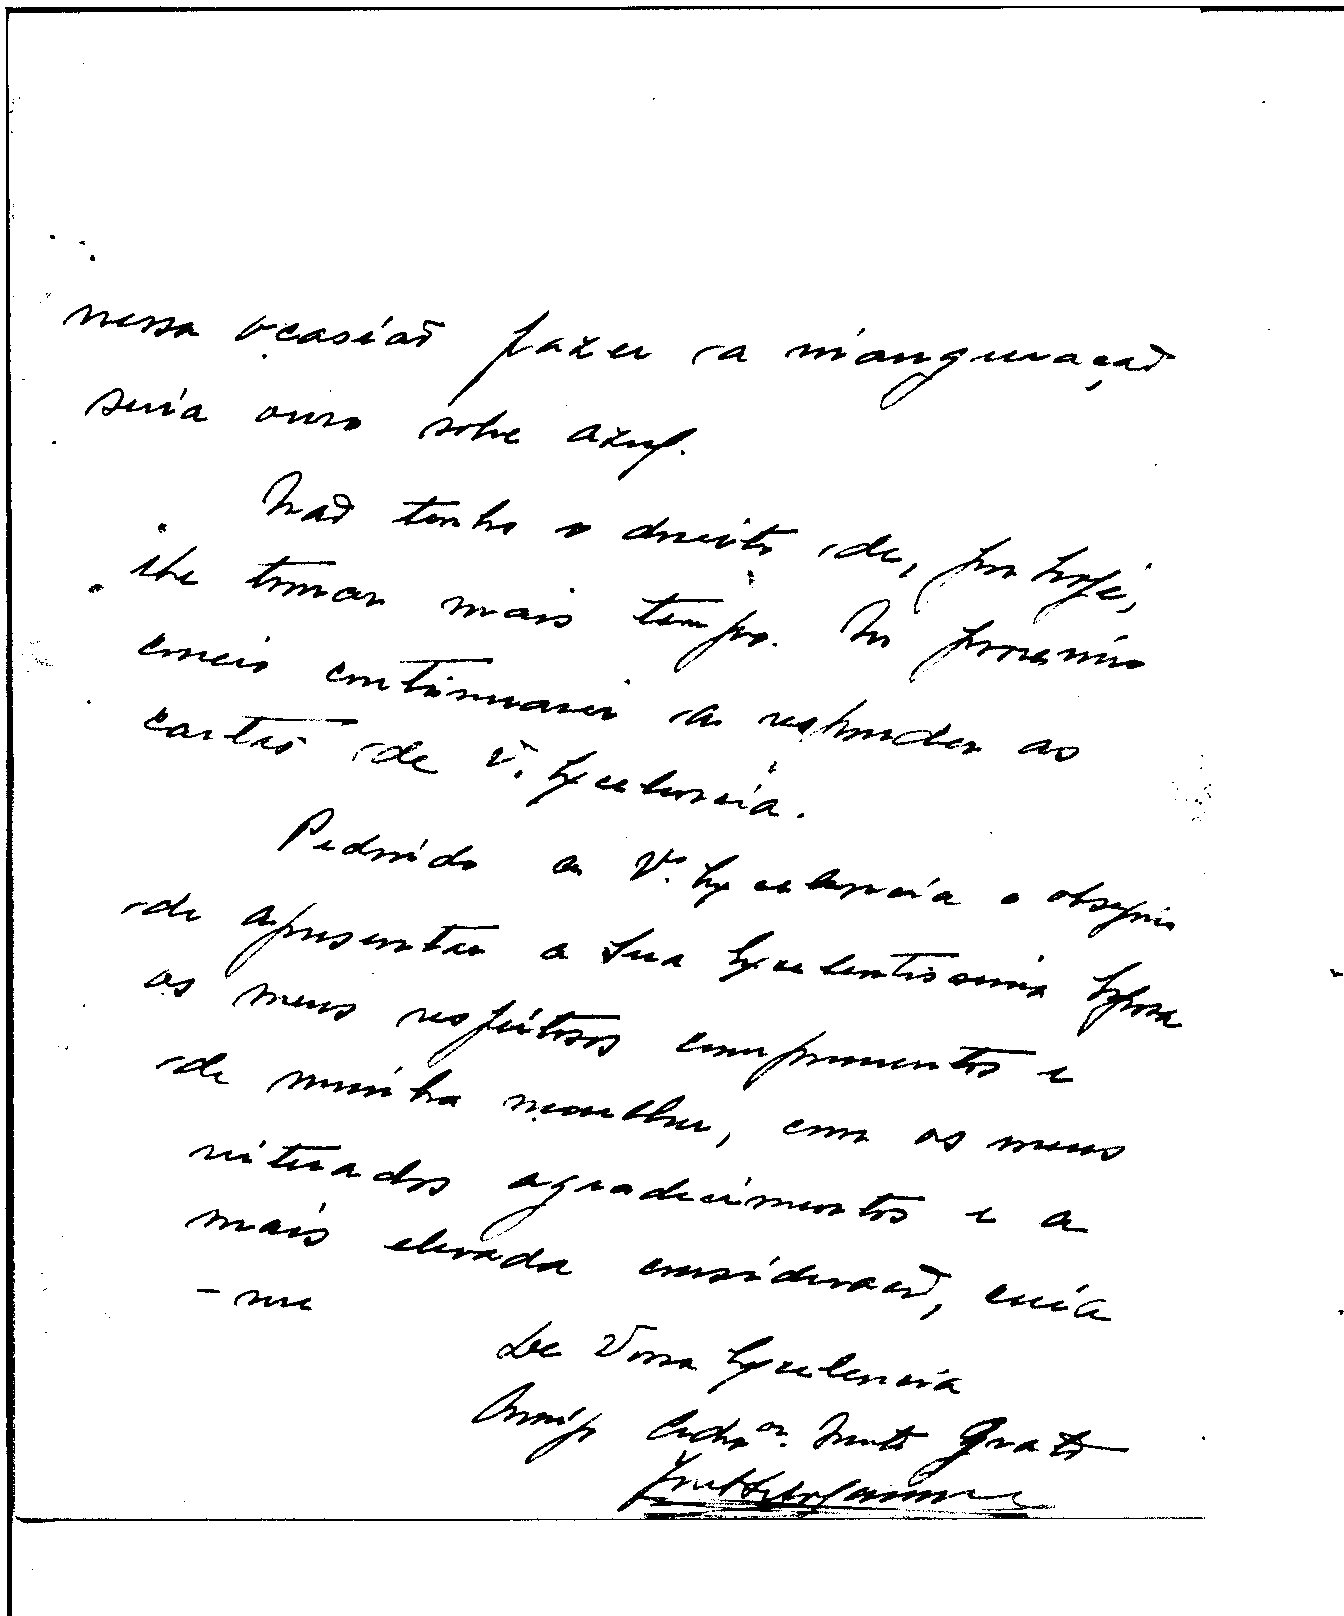 nessa ocasiaõ fazer a inauguraçaõ
seria ouro sobre azul.
Naõ tenho o direito de, por hoje,
lhe tomar mais tempo. No proximo
correio continuarei a responder as
cartas de V. Excelencia.
Pedindo a V. Excelencia o obsequio
de apresentar a Sua Excelentissima Esposa
os meus respeitosos cumprimentos e
de minha mulher, com os meus
reiterados agradecimentos e a
mais elevada consideraçaõ, creia
-me
De Vossa Excelencia
Amigo Crdo. Muito Grato